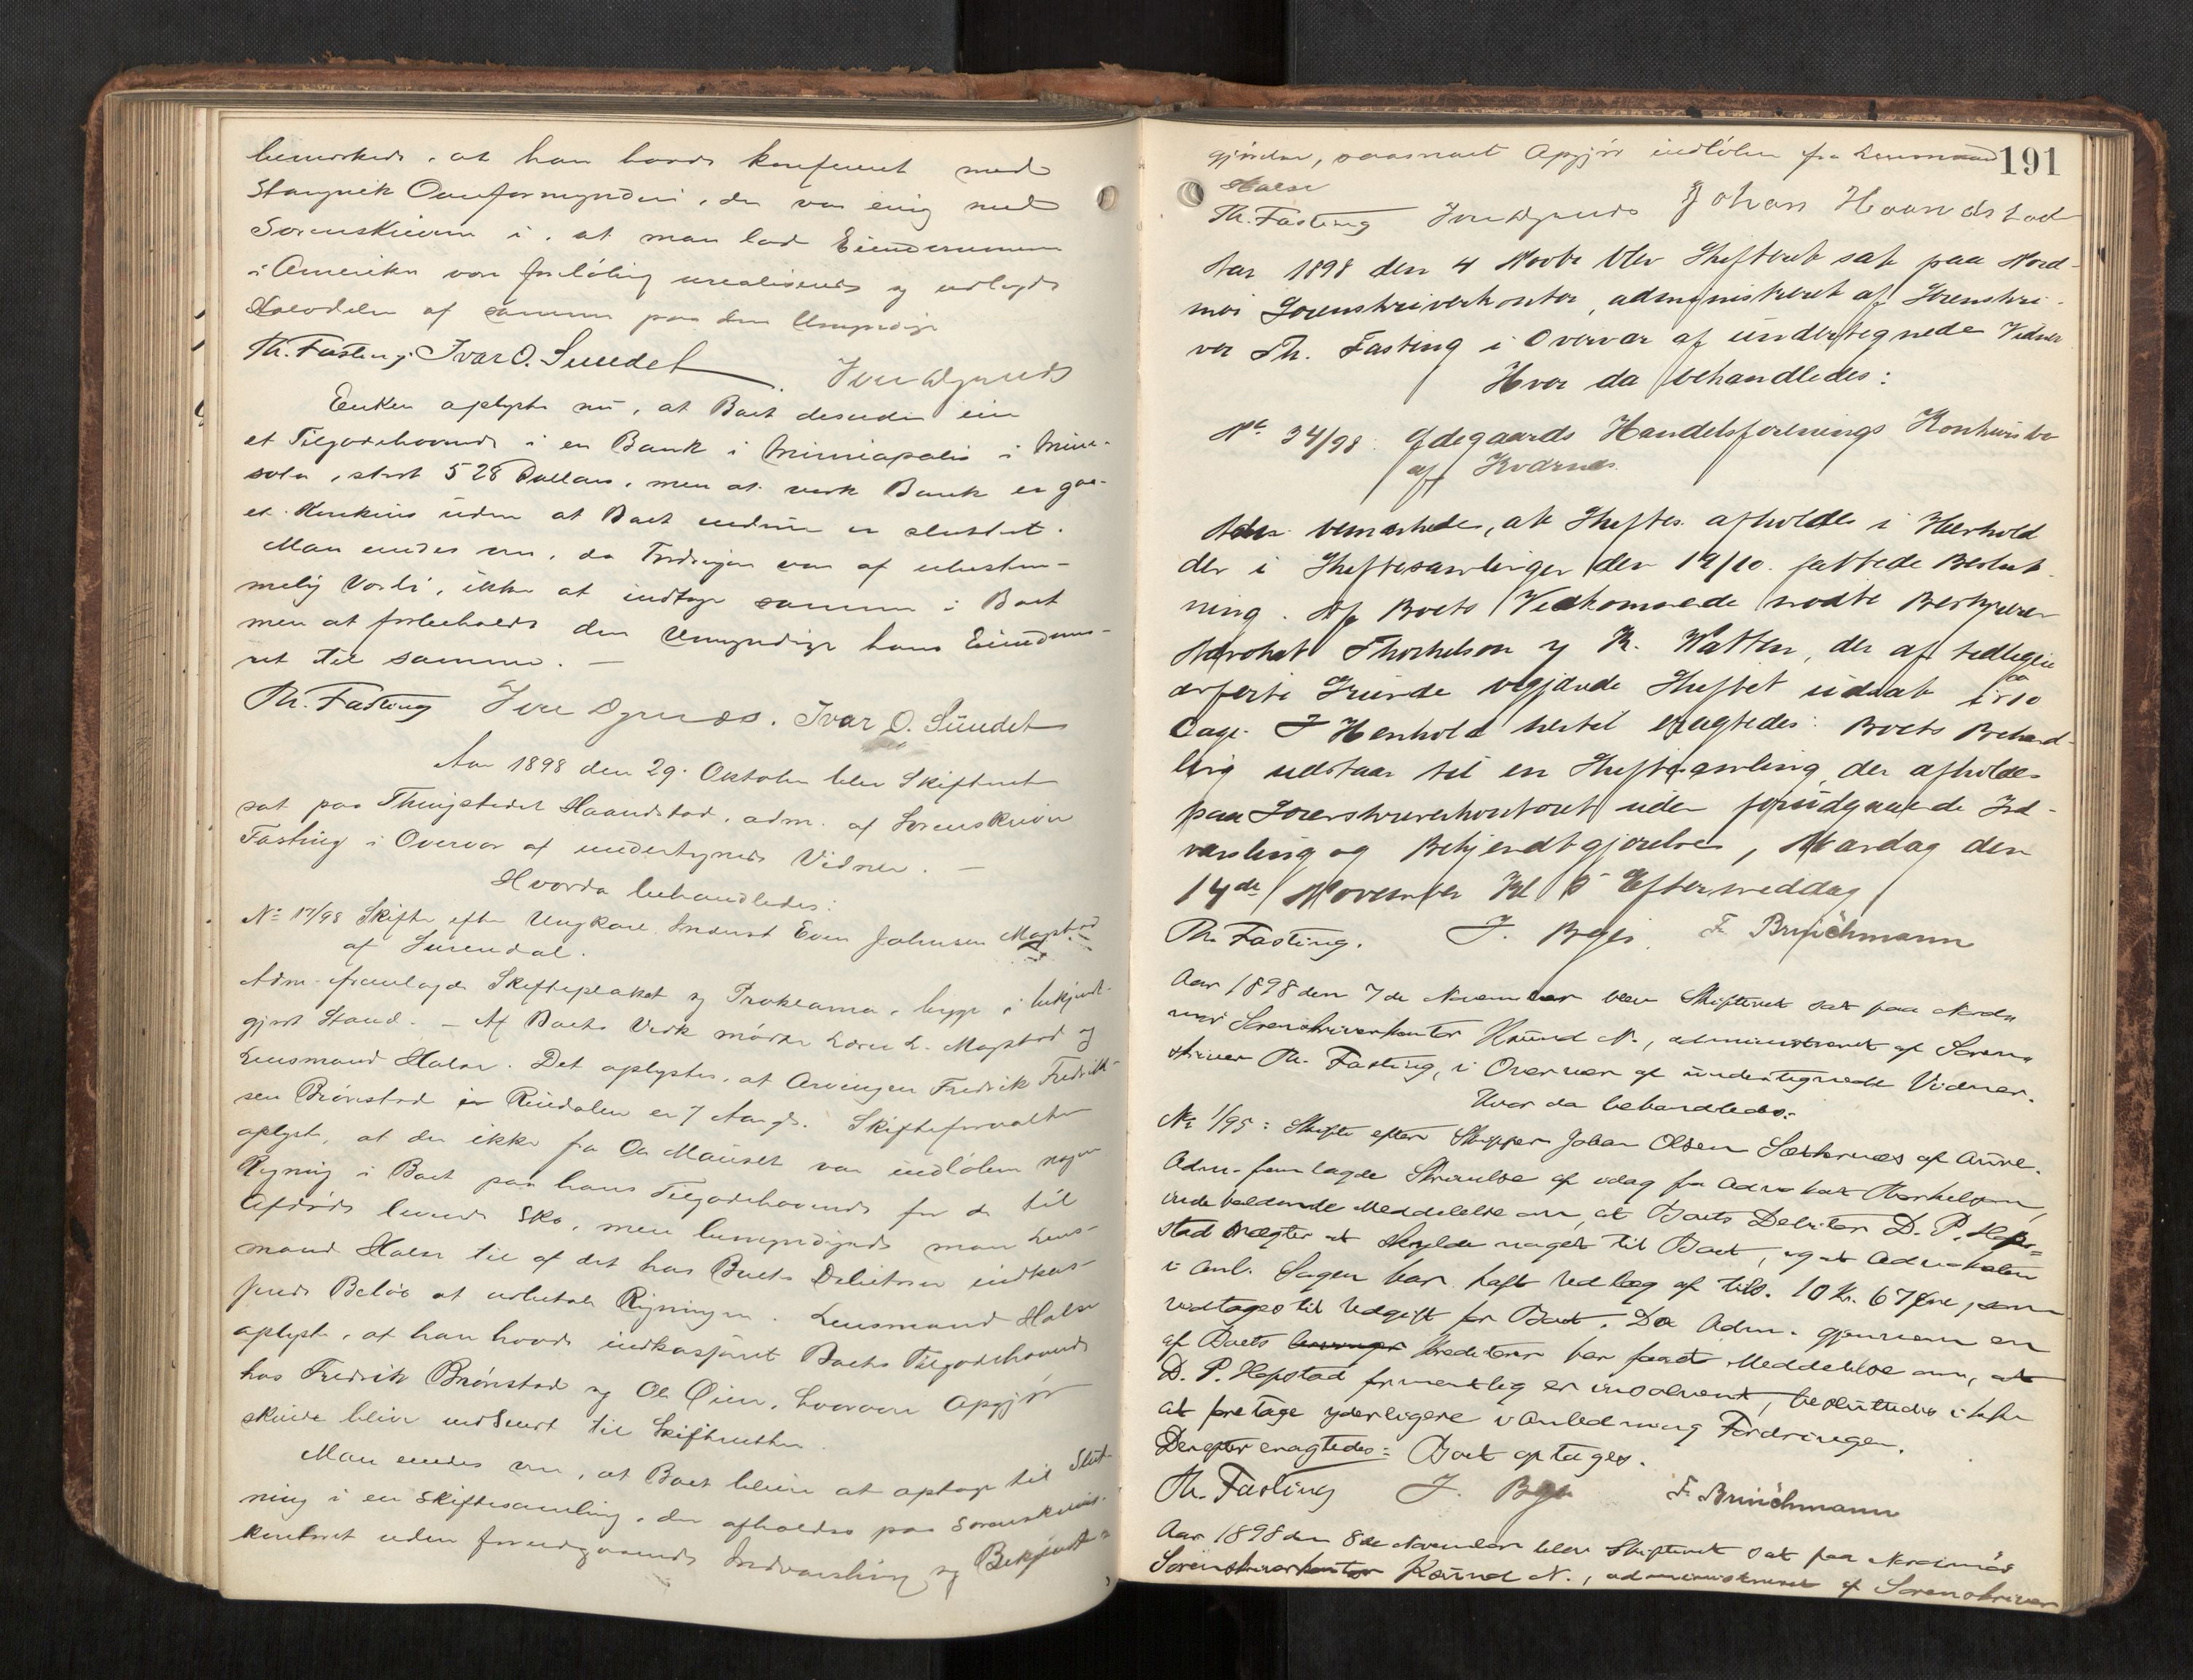 bemærkede, at han havde konfereret med
Stangvik Overformynderi, der var enig med
Sorenskriveren i, at man lod Eiendommen
i Amerika være foreløbig urealiseret og udlagde
Halvdelen af samme paa den Umyndige
Th. Fasting. Ivar O. Sundet
Enken oplyste nu, at Boet desuden eier
et Tilgodehavende i en Bank i Minniapolis i Minne-
sota, stort 528 Dollars, men at vedk Bank er gaa-
et Konkurs uden at Boet endnu er sluttet.
Man enedes om, da Fordringen var af ubestem-
melig Værdi, ikke at indtage samme i Boet
men at forbeholde den Umyndige hans Eiendoms-
ret til samme. —
Th. Fasting Ivar O. Sundet
Aar 1898 den 29. Oktober blev Skifteret
sat paa Thingstedet Haandstad, adm. af Sorenskriver
Fasting i Overvær af undertegnede Vidner. —
Hvorda behandledes:
No 17/98 Skifte efter Ungkarl Inderst Even Johnsen Mogstad
af Surendal.
Adm. fremlagde Skifteplakat og Proklama, begge i bekjendt-
gjort Stand. — Af Boets Vedk mødte Lærer L. Mogstad og
Lensmand Halse. Det oplystes, at Arvingen Fredrik Fredrik-
sen Brønstad i Rindalen er 7 Aar gl. Skifteforvalteren
oplyste, at der ikke fra Ole Mauset var indløben nogen
Regning i Boet paa hans Tilgodehavende for de til
Afdøde leverede Sko, men bemyndigede man Lens-
mand Halse til af det hos Boets Debitorer indkas-
serede Beløb at udbetale Regningen. Lensmand Halse
oplyste, at han havde indkasseret Boets Tilgodehavende
hos Fredrik Brønstad og Ole Øien, hvorover Opgjør
skulde blive indsendt til Skifteretten.
Man enedes om, at Boet bliver at optage til Slut-
ning i en Skiftesamling, der afholdes paa Sorenskriver-
kontoret uden forudgaaende Indvarsling og Bekjendt-
191
gjørelse, saasnart Opgjør indløber fra Lensmand
Halse
Th. Fasting Johan Haandstad
Aar 1898 den 4 Novbr blev Skifteret sat paa Nord-
møre Sorenskriverkontor, administreret af Sorenskri-
ver Th. Fasting i Overvær af undertegnede Vidner
Hvor da behandledes:
No 34/98. Ødegaards Handelsforenings Konkursbo
af Kvernes.
Adm. bemærkede, at Skiftes. afholdes i Henhold
der i Skiftesamlingen den 19/10. fattede Beslut-
ning. Af Boets Vedkommende mødte Bestyreren
Advokat Thorkelson og K. Watten, der af tidligere
anførte Grunde begjærede Skiftet udsat i 10
Dage. I Henhold hertil eragtedes: Boets Behand-
ling udstaar til en Skiftesamling, der afholdes
paa Sorenskriverkontoret uden forudgaaende Ind-
varsling og Bekjendtgjørelse, Mandag den
14de November Kl 5 Eftermiddag
Th. Fasting. F. Brinchmann
Aar 1898 den 7de November blev Skifteret sat paa Nord-
møre Sorenskriverkontor Ksund N., administreret af Soren-
skriver Th. Fasting, i Overvær af undertegnede Vidner.
Hvor da behandledes:
No 1/95: Skifte efter Skipper Johan Olsen Sæternæs af Aure.
Adm. fremlagde Skrivelse af idag fra Advokat Thorkelson,
indeholdende Meddelelse om, at Boets Debitor D. P. Hop-
stad nægter at skylde noget til Boet, og at Advokaten
i Anl. Sagen har havt Udlæg af tils. 10 Kr. 67 Øre, som
vedtages til Udgift for Boet. Da Adm. gjennem en
af Boets Kreditorer har faaet Meddelelse om, at
D. P. Hopstad formentlig er insolvent, besluttedes ikke
at foretage yderligere i Anledning Fordringen.
Derefter eragtedes: Boet optages.
Th. Fasting F. Brinchmann
Aar 1898 den 8de November blev Skifteret sat paa Nordmøre
Sorenskriverkontor Ksund N., administreret af Sorenskriver